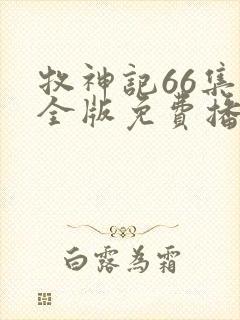 牧神記66集
全版免費播
白露為霜